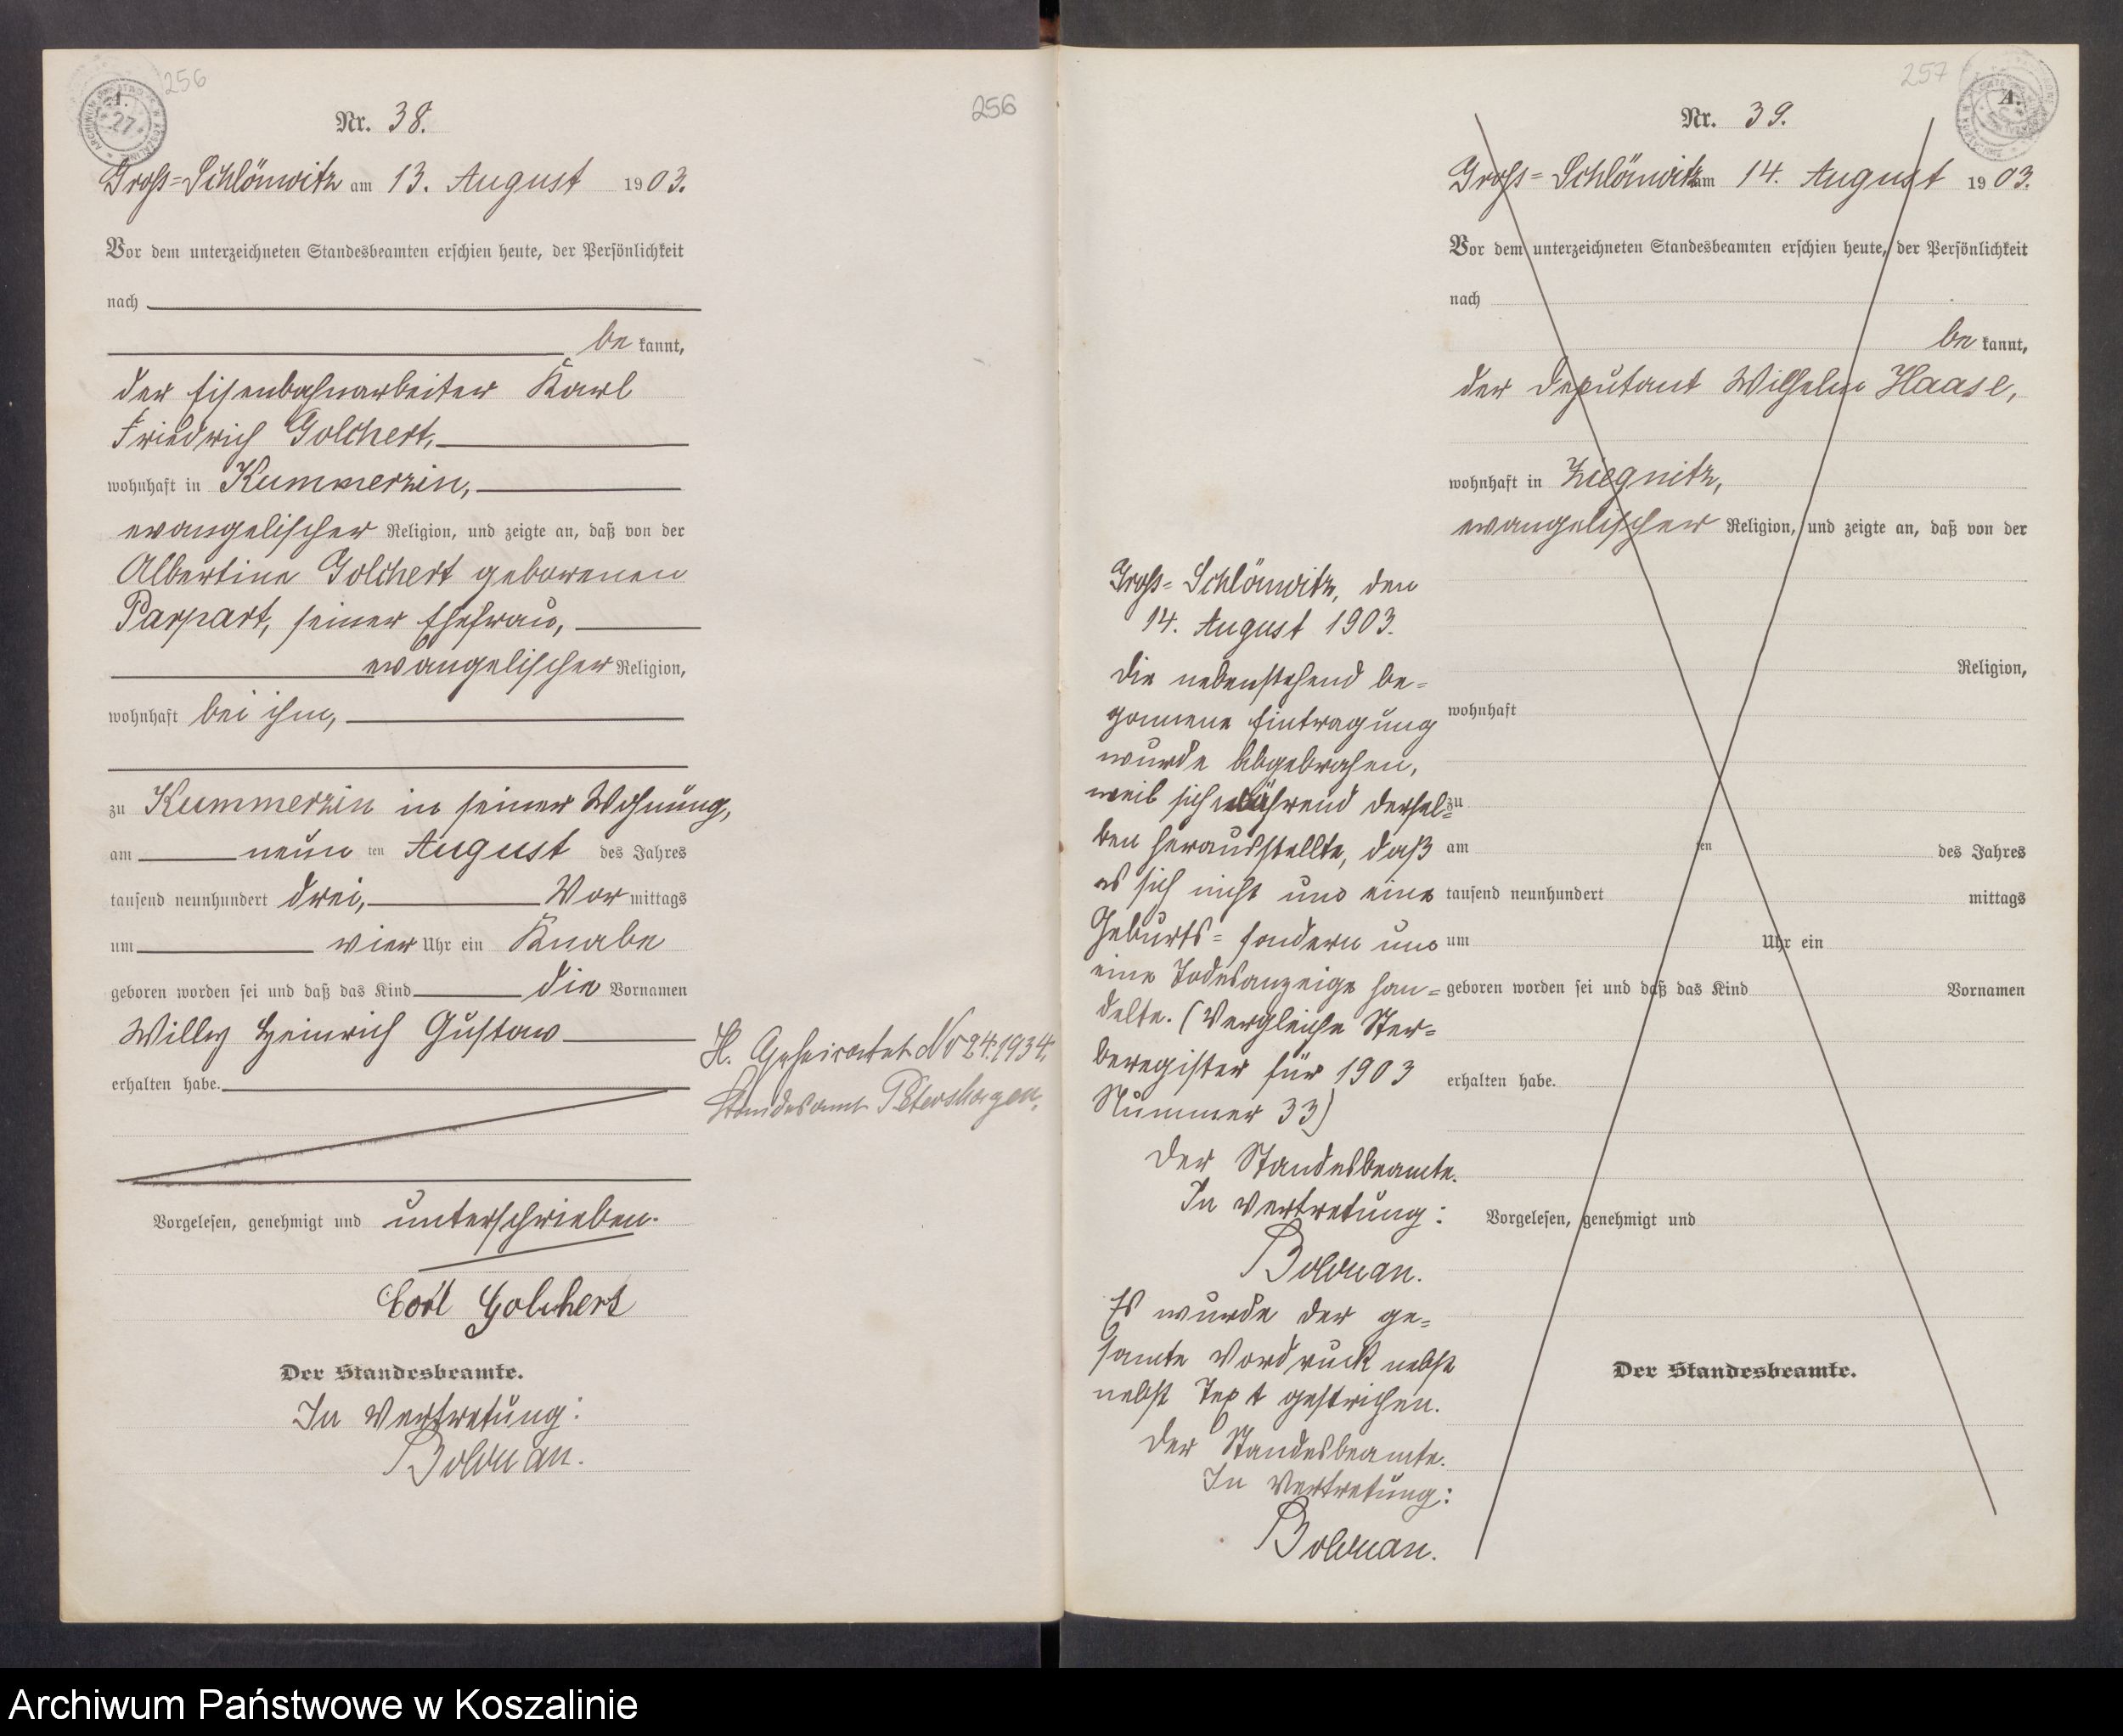 256
256
A.
27
Nr. 38.
Groß-Schlönwitz am 13. August 1903.
Vor dem unterzeichneten Standesbeamten erschien heute, der Persönlichkeit
nach
be kannt,
der Eisenbahnarbeiter Karl
Friedrich Golchert,
wohnhaft in Kummerzin,
evangelischer Religion, und zeigte an, daß von der
Albertine Golchert geborenen
Parpart, seiner Ehefrau,
evangelischer Religion,
wohnhaft bei ihm,
zu Kummerzin in seiner Wohnung,
am neun ten August des Jahres
tausend neunhundert drei, Vor mittags
um vier Uhr ein Knabe
geboren worden sei und daß das Kind die Vornamen
Willy Heinrich Gustav
erhalten habe.
H. Geheiratet No 24.1934.
Standesamt Petershagen.
Vorgelesen, genehmigt und unterschrieben.
Carl Golchert
Der Standesbeamte.
In Vertretung:
Bolduan.
257
A.
Nr. 39.
Groß-Schlönwitz am 14. August 1903.
Vor dem unterzeichneten Standesbeamten erschien heute, der Persönlichkeit
nach
be kannt,
der Deputant Wilhelm Haase,
wohnhaft in Ziegnitz,
evangelischer Religion, und zeigte an, daß von der
Religion,
wohnhaft
zu
am ten des Jahres
tausend neunhundert mittags
um Uhr ein
geboren worden sei und daß das Kind Vornamen
erhalten habe.
Vorgelesen, genehmigt und
Der Standesbeamte.
Groß-Schlönwitz, den
14. August 1903.
Die nebenstehend be=
gonnene Eintragung
wurde abgebrochen,
weil sich während dersel=
ben herausstellte, daß
es sich nicht um eine
Geburts= sondern um
eine Todesanzeige han=
delte. (Vergleiche Ster=
beregister für 1903
Nummer 33)
Der Standesbeamte.
In Vertretung:
Bolduan.
Es wurde der ge=
samte Vordruck nebst
nebst Text gestrichen.
Der Standesbeamte.
In Vertretung:
Bolduan.
Archiwum Państwowe w Koszalinie